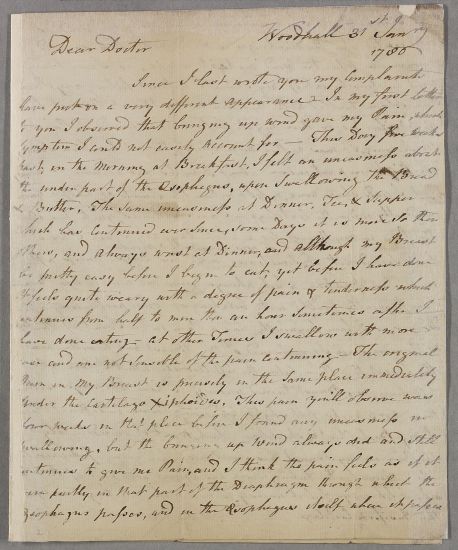 Woodhall 31st Janry
1786
Dear Doctor
Since I last wrote you my Complaints
have put on a very different appearance - In my first letter
to you I observed that bringing up wind gave my Pain, which
symptom I could not easily account for - This Day five weeks
past, in the morning at Breakfast, I felt an uneasiness about
the under part of the Esophagus, upon Swallowing the Bread
& Butter, The same uneasiness at Dinner, Tea, & Supper
which has continued ever since, some Days it is more so than
others, and always worst at Dinner, and although my Breast
be pretty easy before I begin to eat, yet before I have done
it feels quite weary with a degree of pain & tenderness which
continues from half to more than an hour sometimes after I
have done eating - at other Times I swallow with more
ease and am not sensible of the pain continuing - The original
Pain in my Breast is precisely in the same place immediately
under the Cartilago Xiphoides. This pain you'll observe was
four weeks in that place before I found any uneasiness in
swallowing, but the bringing up Wind always did and still
continues to give me Pain, and I think the pain feels as if it
were partly in that part of the Diaphragm through which the
Esophagus passes, and in the Esophagus itself where it passes